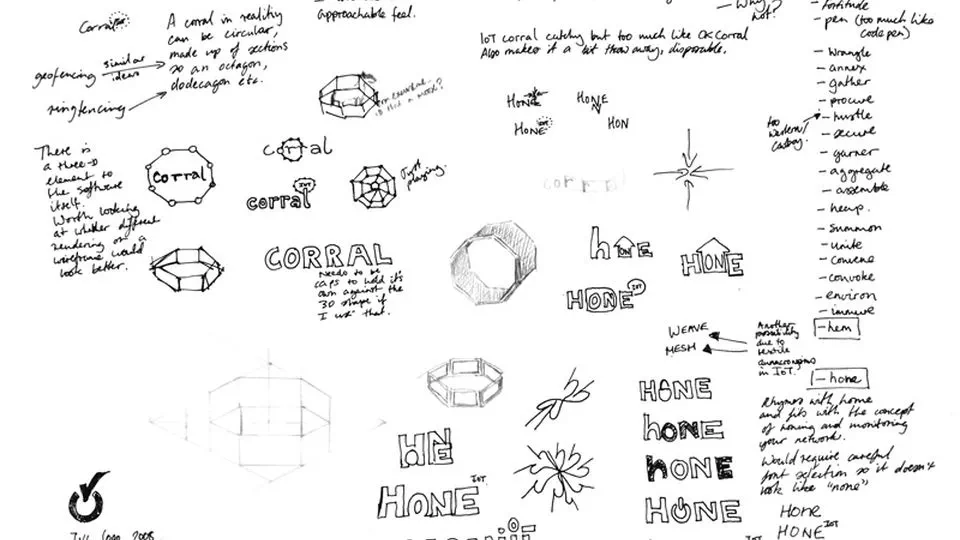 approachable feel.
Corral
A corral in reality
can be circular,
made up of sections
so an octagon,
dodecagon etc.
geofencing
similar
ideas
ringfencing
IoT corral catchy but too much like OK Corral
Also makes it a bit throw away, disposable.
not?
fortitude
- pen (too much like
codepen)
- wrangle
- annex
- gather
- procure
- hustle
- secure
- garner
- aggregate
- assemble
- heap.
- summon
- unite
- convene
- convoke
- environ
- immure
- hem
- hone
too
western/
cowboy.
HONE
HONE
HONE IOT
HON
There is
a three-D
element to
the software
itself.
Worth looking
at whether different
rendering on a
wireframe would
look better.
corral
corral
corral IOT
Just
playing.
corral
CORRAL
Needs to be
caps to hold its
own against the
3D shape if
I use that.
hONE
HONE
HONE IOT
WEAVE
MESH
Another
possibility
due to
textile
in IoT.
Rhymes with home
and fits with the concept
of honing and monitoring
your network.
Would require careful
font selection so it doesn't
look like "none"
HONE
HONE IOT
HONE
hONE
hONE
HONE
HNE
HONE IOT
Logo 2008